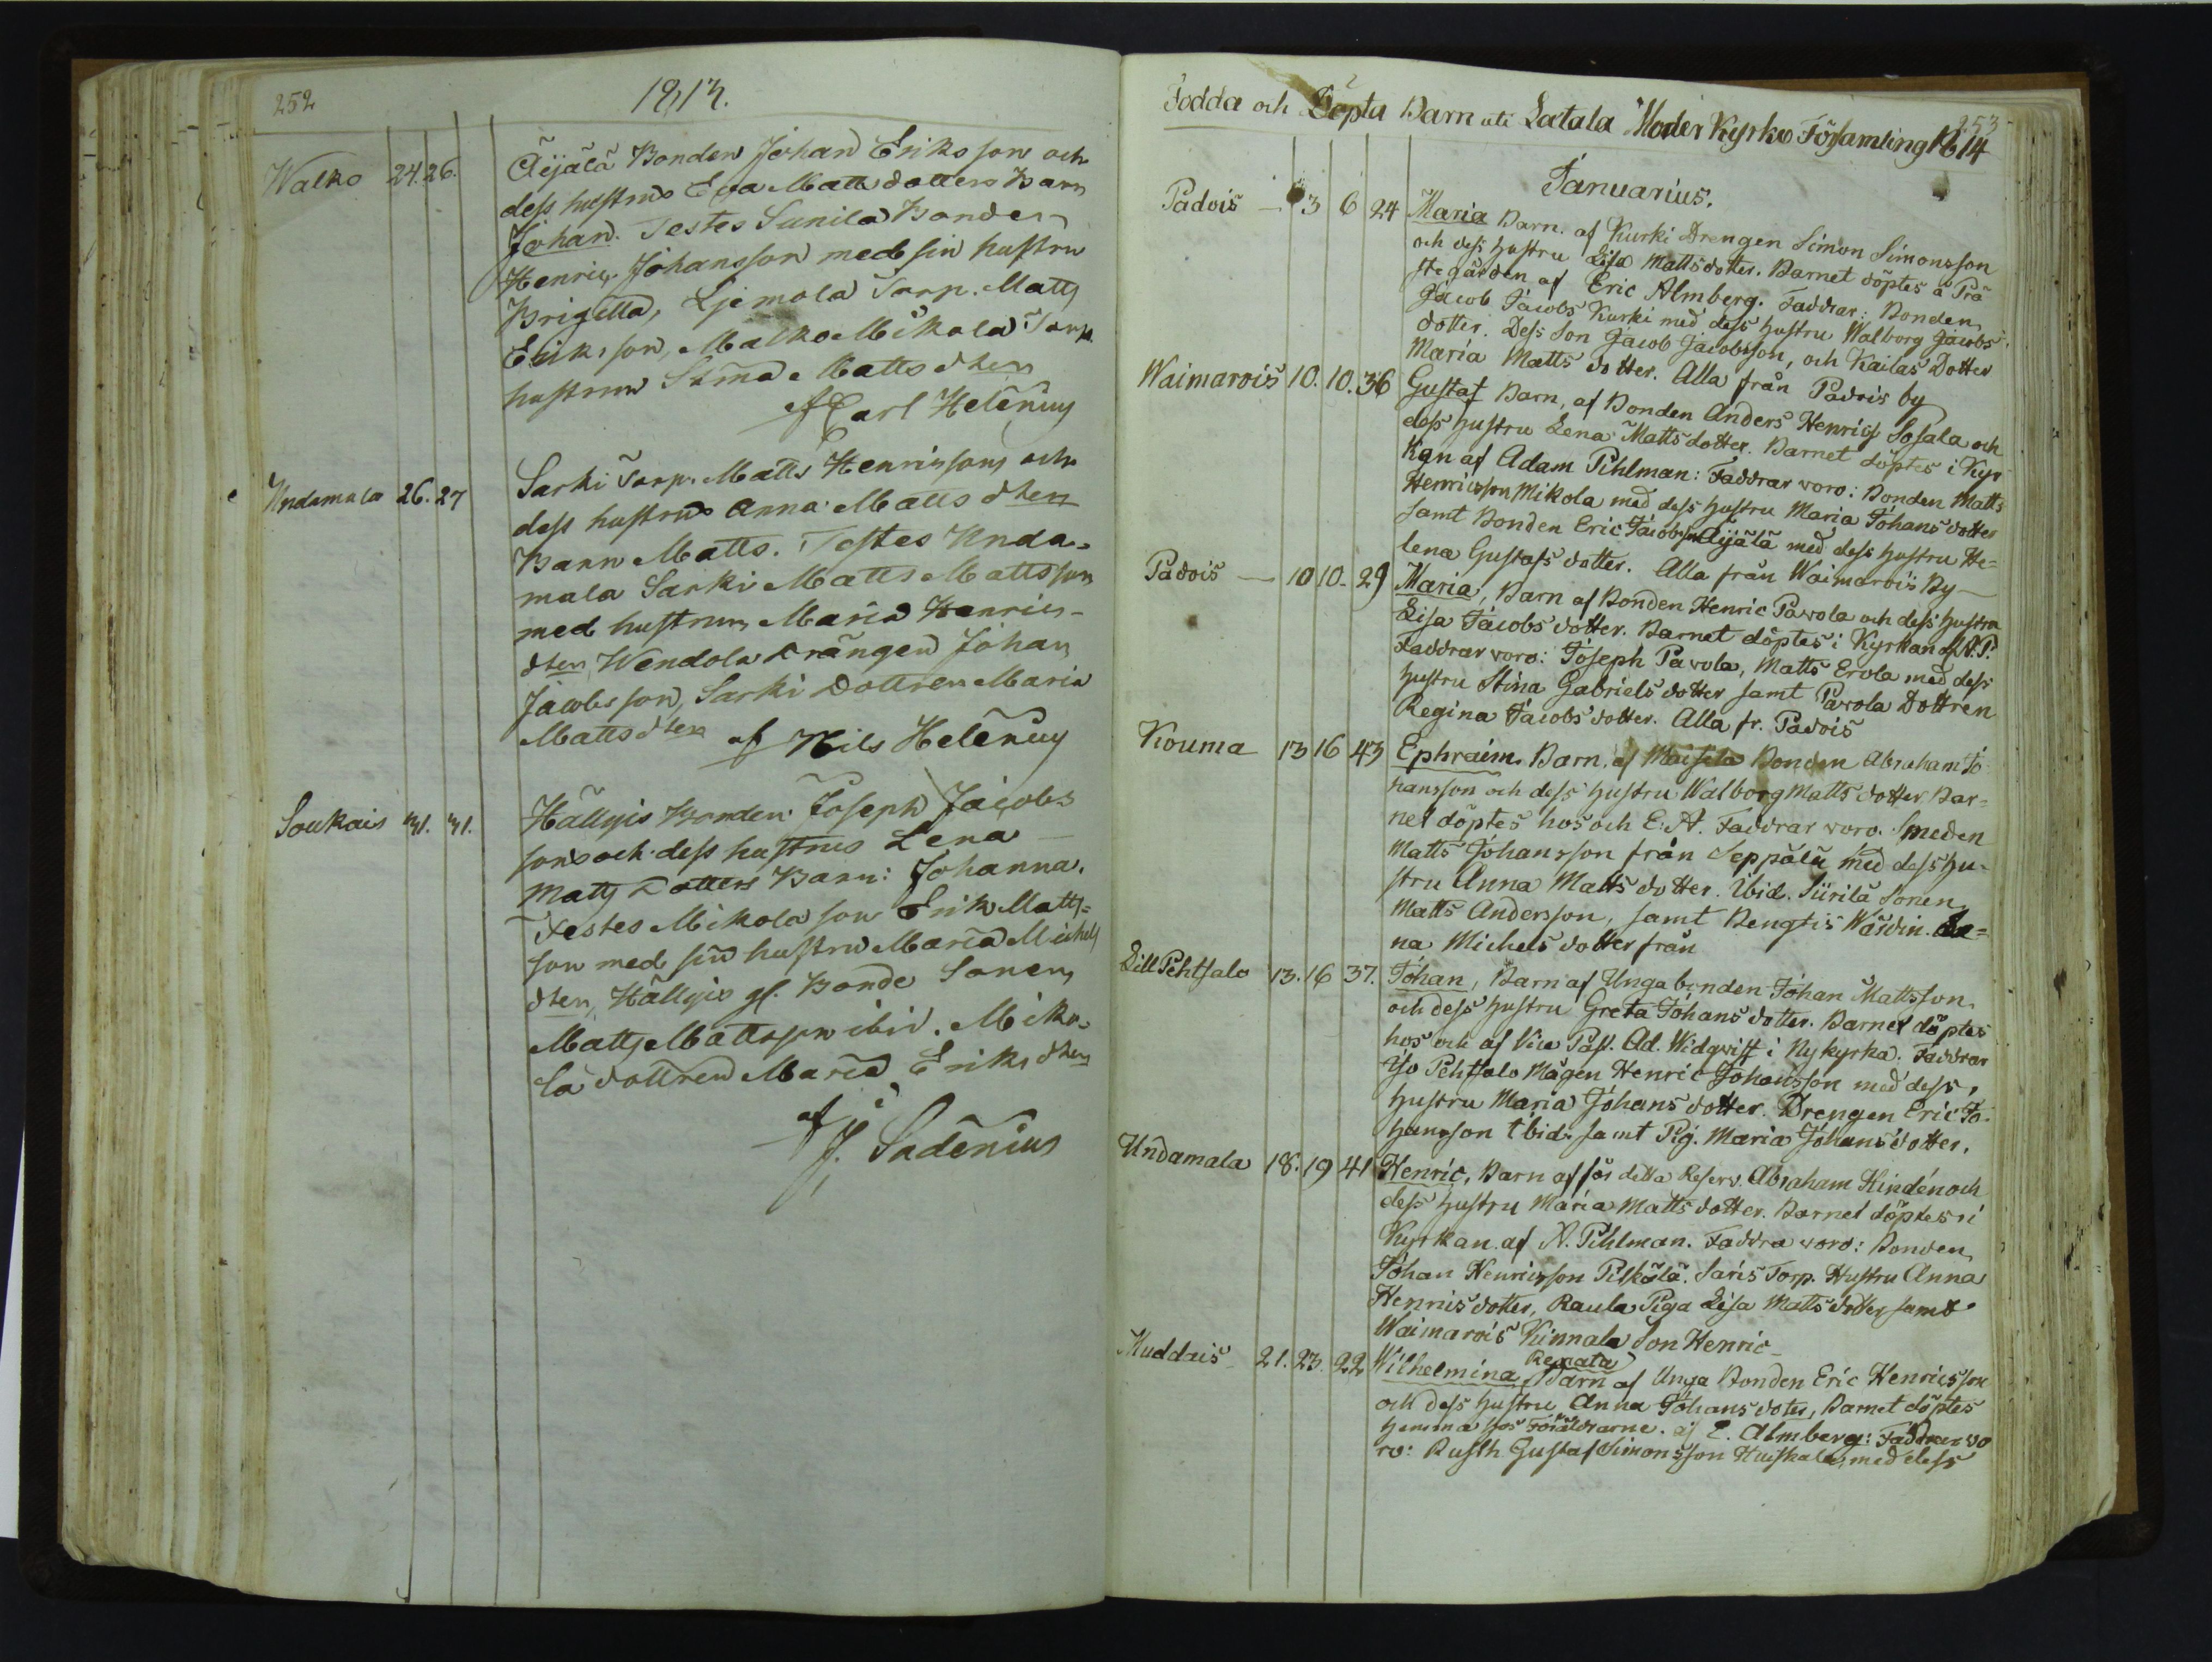 252
1813.
Walko 24. 26. Äijälä Bonden Johan Eriks son och
dess hustrus Eva Matts dotters Barn
Johan. Testes Sunila Bonden
Henric Johansson med sin hustru
Brigitta, Torp. Matts
Eriksson, Malko Mikola Torp.
hustrun Stina Matts dter
af Carl Helenius
Undamala 26. 27 Sarki Torp. Matts Henricssons och
dess hustrus Anna Matts dters
Barn Matts. Testes Unda-
mala Sarki Matts Mattsson
med hustrun Maria Henrics-
dter, Wendola Drängen Johan
Jacobs son, Sarki Dottren Maria
Matts dter af Nils Helenius
Soukais 31. 31. Hällyis Bonden Joseph Jacobs
sons och dess hustrus Lena
Matts Dotters Barn: Johanna.
Testes Mikola son Erik Matts=
son med sin hustru Maria Michels
dter, Hällyis gl. Bonde Sonen
Matts Mattsson ibid. Miko-
la dottren Maria Eriks dter
af J. Sadenius
253
Födda och Döpta Barn uti Latala Moder Kyrko Församling 1814
Januarius.
Padois — 3 6 24 Maria Barn. af Kurki Drengen Simon Simonsson
och dess hustru Lisa Mattsdotter. Barnet döptes å Prä
stegården af Eric Almberg. Faddrar: Bonden
Jacob Jacobs Kurki med dess hustru Walborg Jacobs
dotter. Dess Son Jacob Jacobsson, och Kailas Dotter
Maria Matts dotter. Alla från Padois by
Waimarois 10. 10. 36 Gustaf Barn, af Bonden Anders Henrics Sosala och
dess hustru Lena Matts dotter. Barnet döptes i Kyr
kan af Adam Pihlman: Faddrar voro: Bonden Matts
Henricsson Mikola med dess hustru Maria Johans dotter
samt Bonden Eric Jacobsson Äijälä med dess hustru He=
lena Gustafs dotter. Alla från Waimarois By—
Padois — 10 10. 29 Maria, Barn af Bonden Henric Pavola och dess hustru
Lisa Jacobs dotter. Barnet döptes i Kyrkan af A. P.
Faddrar voro: Joseph Pavola, Matts Erola med dess
hustru Stina Gabriels dotter samt Pavola Dottren
Regina Jacobs dotter. Alla fr. Padois
Kouma 13 16 43 Ephraim Barn. af Maisela Bonden Abraham Jo
hansson och dess hustru Walborg Matts dotter Bar=
net döptes hos och E. A. Faddrar voro. Smeden
Matts Johansson från Seppälä med dess hu-
stru Anna Matts dotter. Ibid. Siirilä Sonen
Matts Andersson, samt Bengtis Wärdin.
na Michels dotter från
Lill Pehtsalo 13. 16 37. Johan, Barn af Unga bonden Johan Mattsson
och dess hustru Greta Johans dotter. Barnet döptes
hos och af Vice Past. Ad. Widqvist i Nykyrka. Faddrar
Iso Pehtsalo Mågen Henric Johansson med dess
hustru Maria Johans dotter. Drengen Eric Jo-
hansson ibid: samt Pig. Maria Johans dotter.
Undamala 18. 19 41 Henric, Barn af för detta Reserv. Abraham Hindén och
dess hustru Maria Matts dotter. Barnet döptes i
Kyrkan af A. Pihlman. Faddra voro: Bonden
Johan Henricsson Pilkälä. Saris Torp. Hustru Anna
Henrics dotter, Raula Piga Lisa Matts dotter samt
Waimarois Kinnala Son Henric—
Muddais 21. 23. 22 Wilhelmina Renata Barn af Unga Bonden Eric Henricsson
och dess hustru Anna Johans doter, Barnet döptes
hemma hos Föräldrarne. af E. Almberg: Faddrar vo
ro: Rusth. Gustaf Simonsson Huiskala, med dess